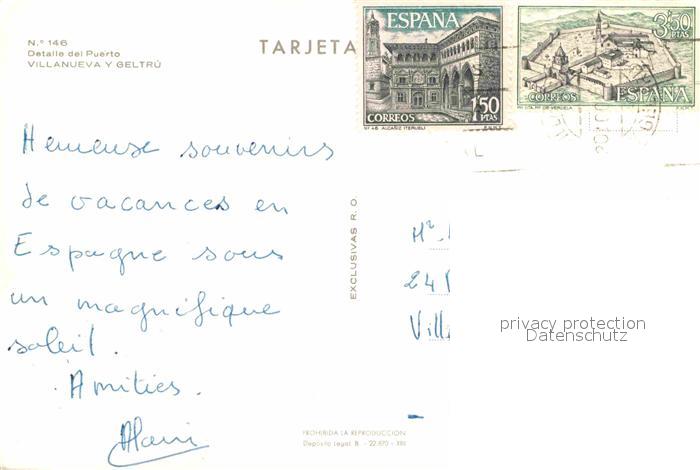 N.º 146
Detalle del Puerto
VILLANUEVA Y GELTRÚ
TARJETA
ESPAÑA
1'50
PTAS
CORREOS
Nº 46 ALCAÑIZ (TERUEL)
3'50
PTAS
CORREOS ESPAÑA
Heureuse souvenirs
de vacances en
Espagne sous
un magnifique
soleil.
Amitiés.
Alain
EXCLUSIVAS R. O.
24
Vill
privacy protection
Datenschutz
PROHIBIDA LA REPRODUCCION
Depósito Legal B. - 22.670 - XIII